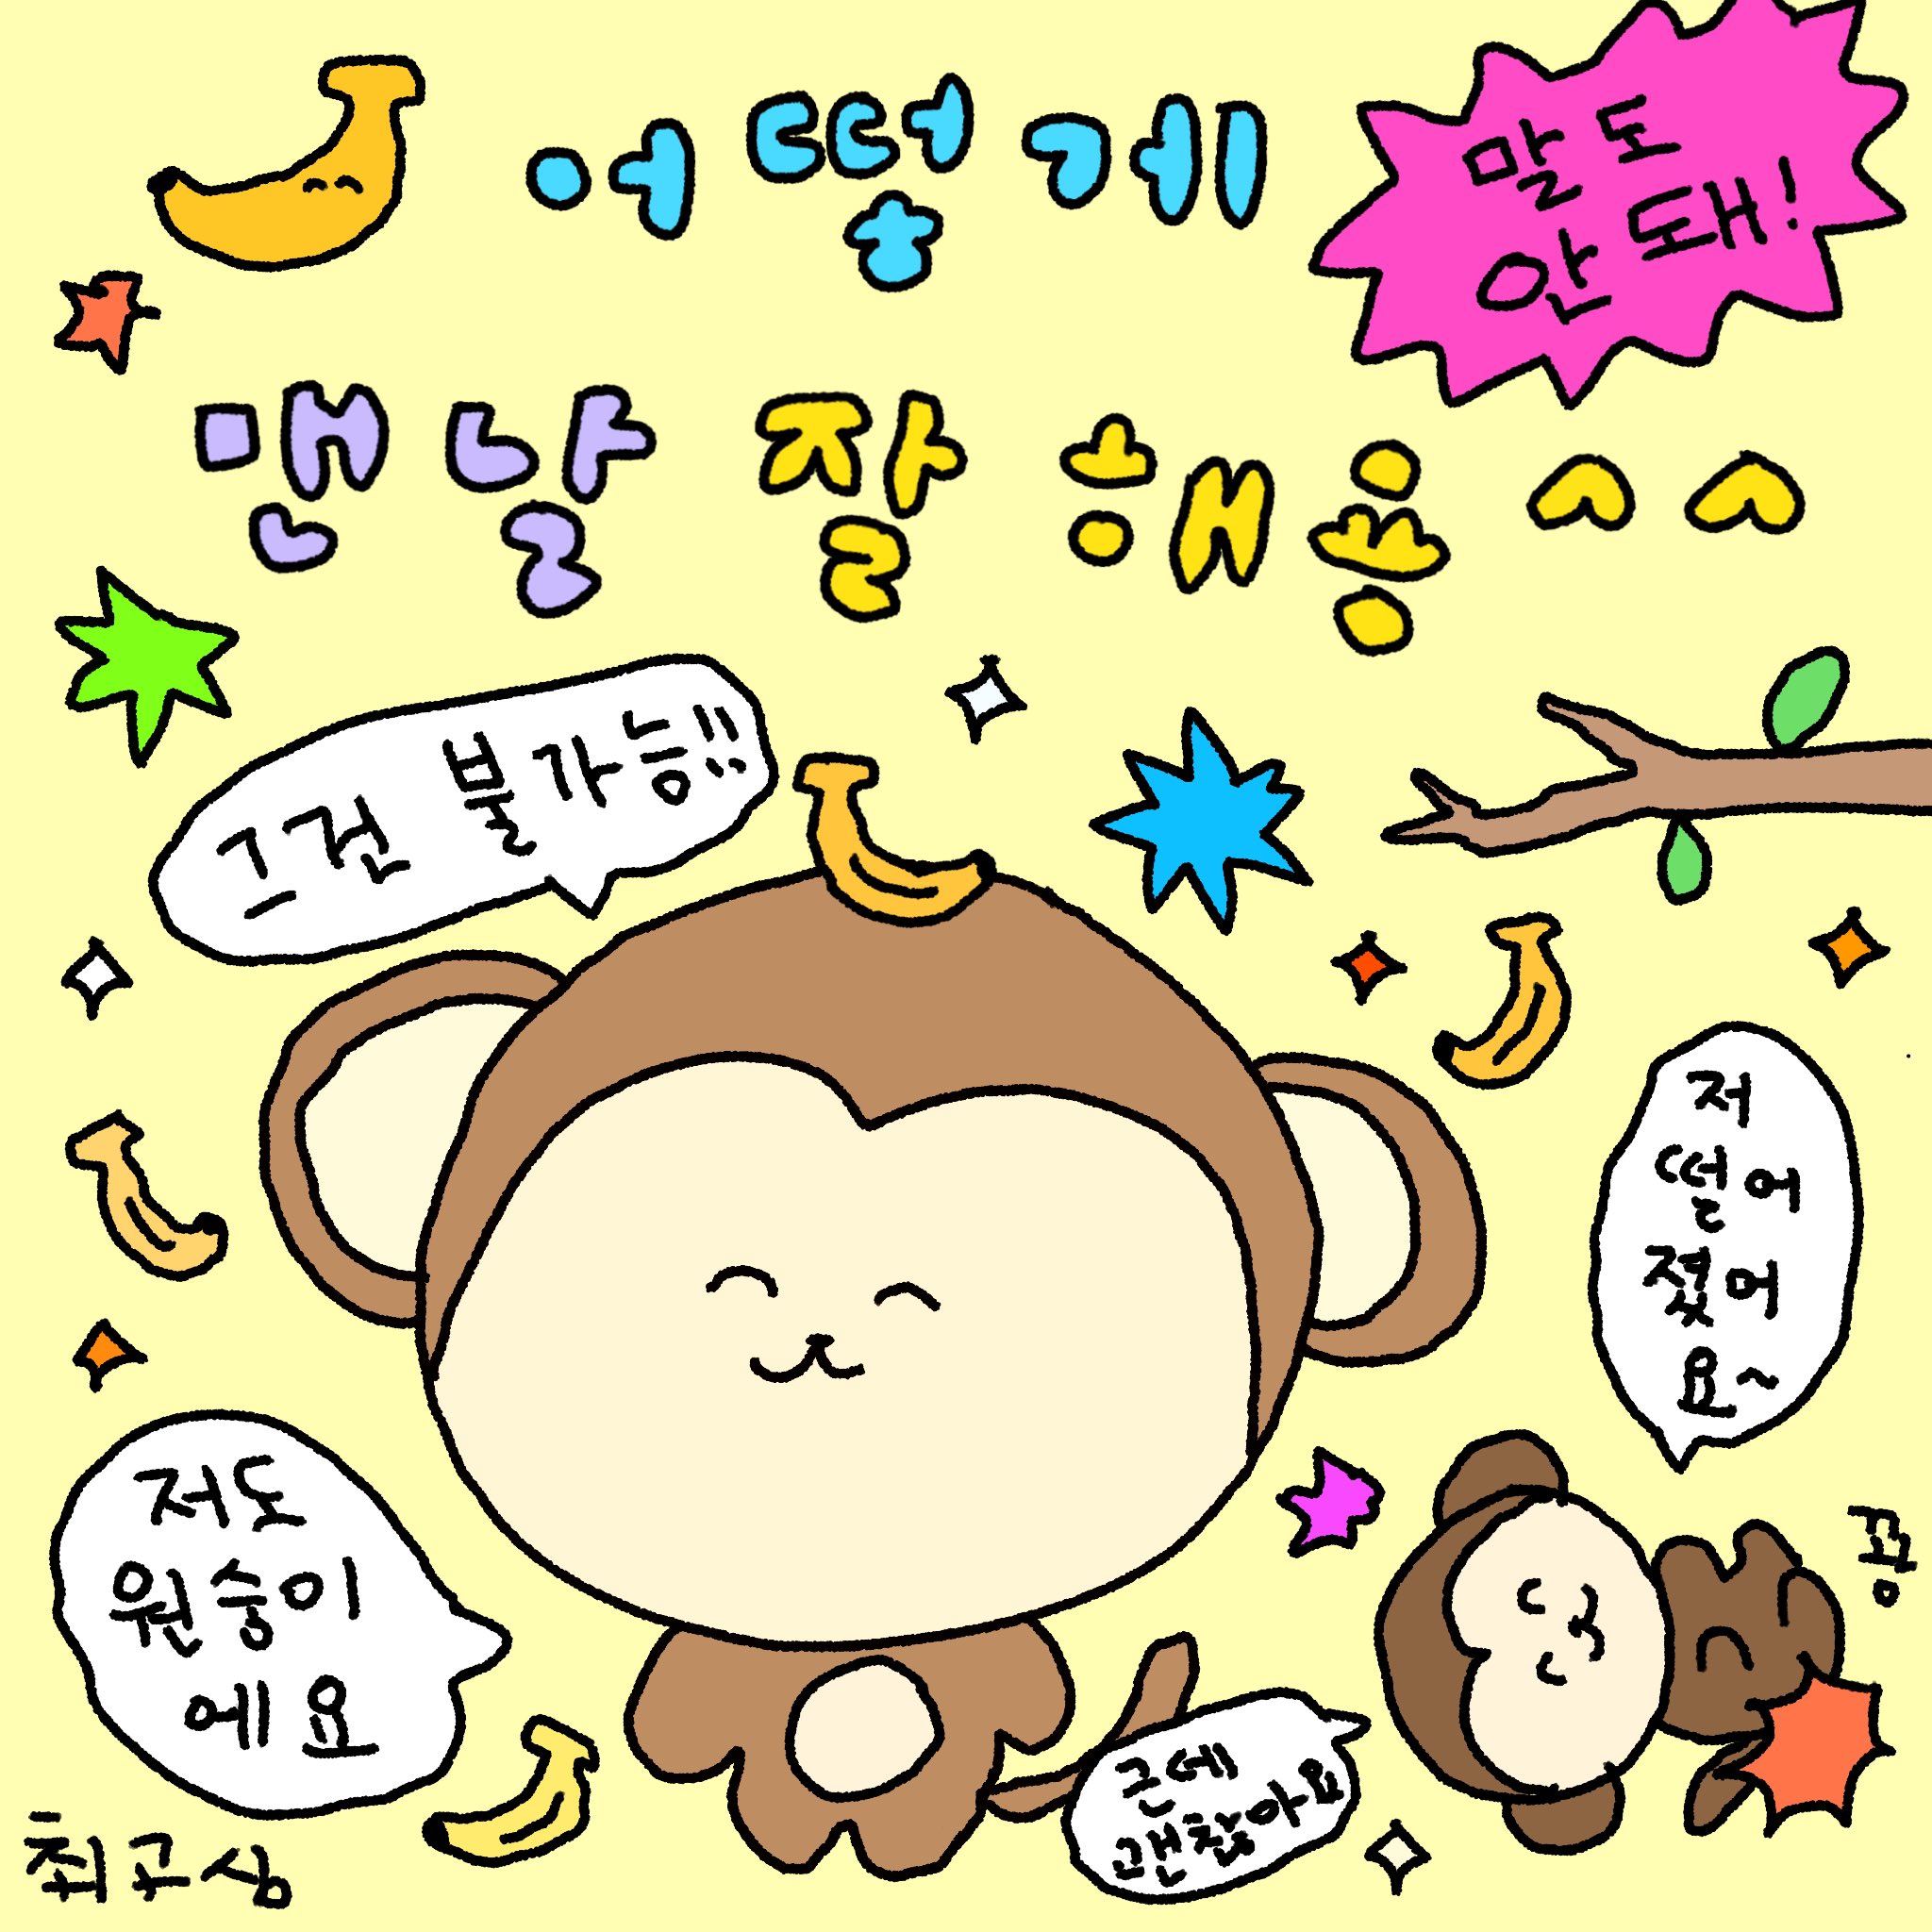 어떻게
말도
안돼!
맨날 잘해용 ^^
그건 불가능!!
저
떨어
졌어
요~
저도
원숭이
에요
근데
괜찮아요
쾅
최고심